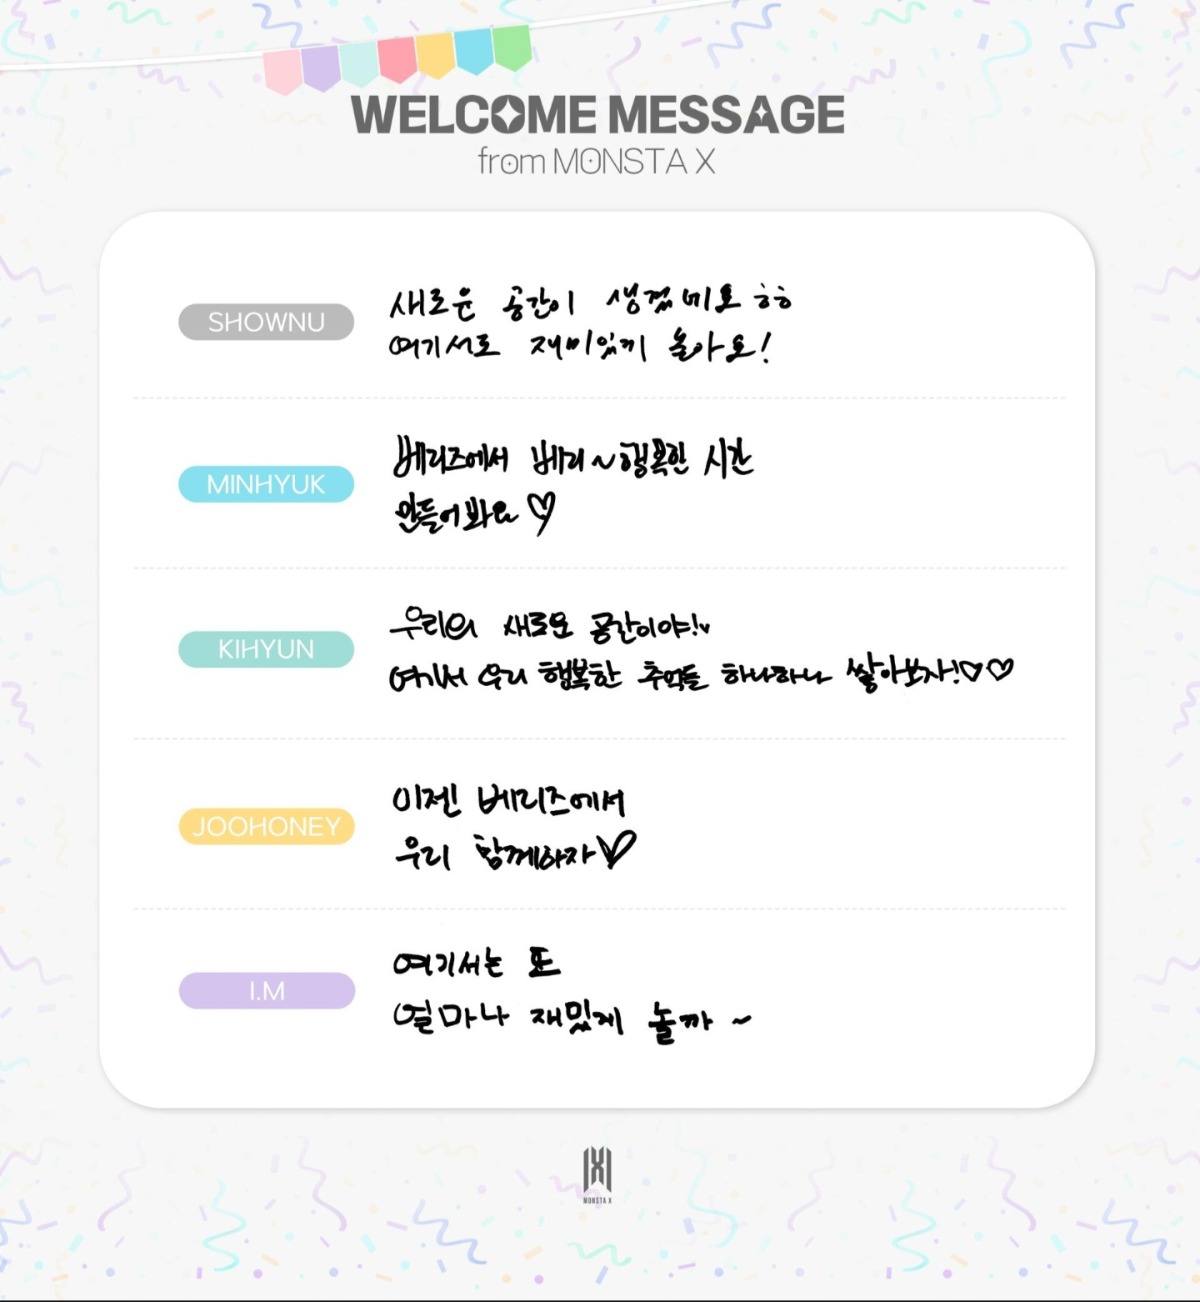 WELCOME MESSAGE
from MONSTA X
SHOWNU
새로운 공간이 생겼네요 ㅎㅎ
여기서도 재미있게 놀아요!
MINHYUK
베리즈에서 베리~행복한 시간
만들어봐요♡
KIHYUN
우리의 새로운 공간이야!♥
여기서 우리 행복한 추억들 하나하나 쌓아보자!♡♡
JOOHONEY
이젠 베리즈에서
우리 함께하자♡
I.M
여기서는 또
얼마나 재밌게 놀까 ~
MONSTA X